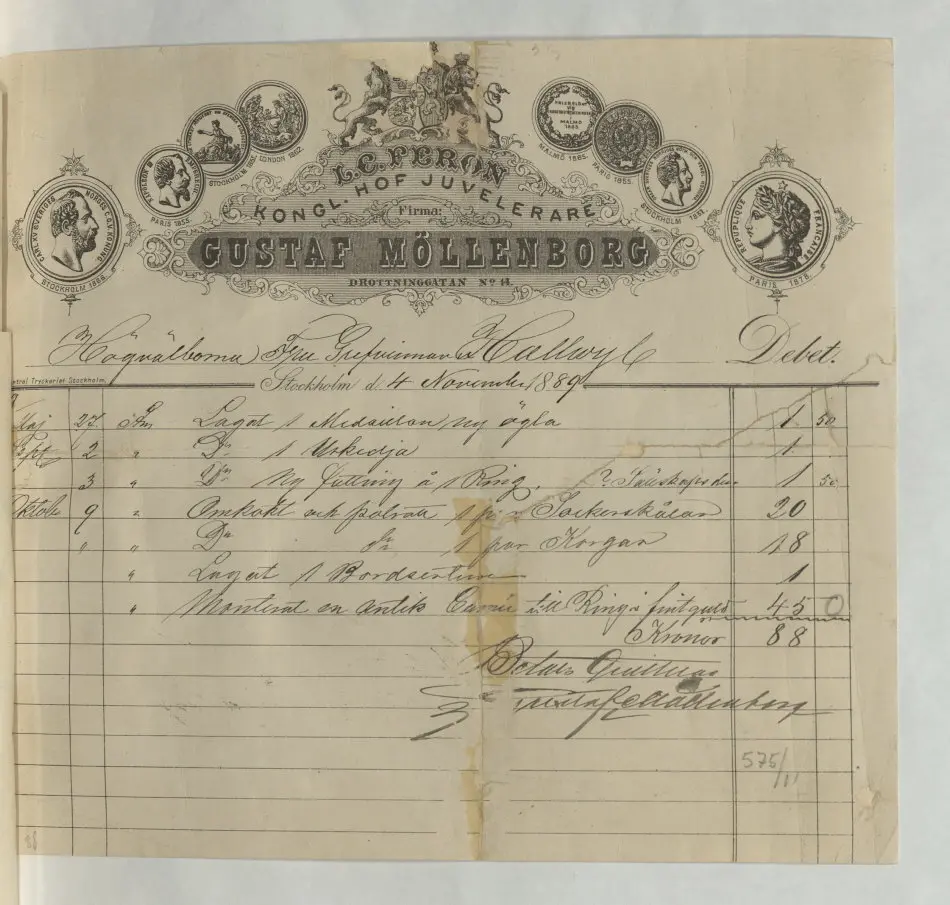 L. C. FERON
KONGL. HOF JUVELERARE
Firma:
GUSTAF MÖLLENBORG
DROTTNINGGATAN No 14.
CARL XV SVERIGES NORGES G. O. V. KONUNG
STOCKHOLM 1866.
PARIS 1855.
STOCKHOLM
LONDON 1862.
MALMÖ 1865.
PARIS 1855.
STOCKHOLM
REPUBLIQUE FRANÇAISE
PARIS 1878.
Högvälborna Fru Grefvinnan Hallwyl Debet.
tral Tryckeriet Stockholm.
Stockholm d. 4 November 1889
Maj 27 Lagat 1 Medaillon, ny ögla 1 50
Sept 2 " Do 1 Urkedja 1
3 " Do Ny fattning å 1 Ring. 1 50
Oktober 9 " Omkokt och polerat 1 par Sockerskålar 20
" " Do Do 1 par Korgar 18
" Lagat 1 Bordsertime 1
" Monterat en antik Camé till Ring i fint guld 45 0
Kronor 88
Betalt Qvitteras
Gustaf Möllenborg
575/11